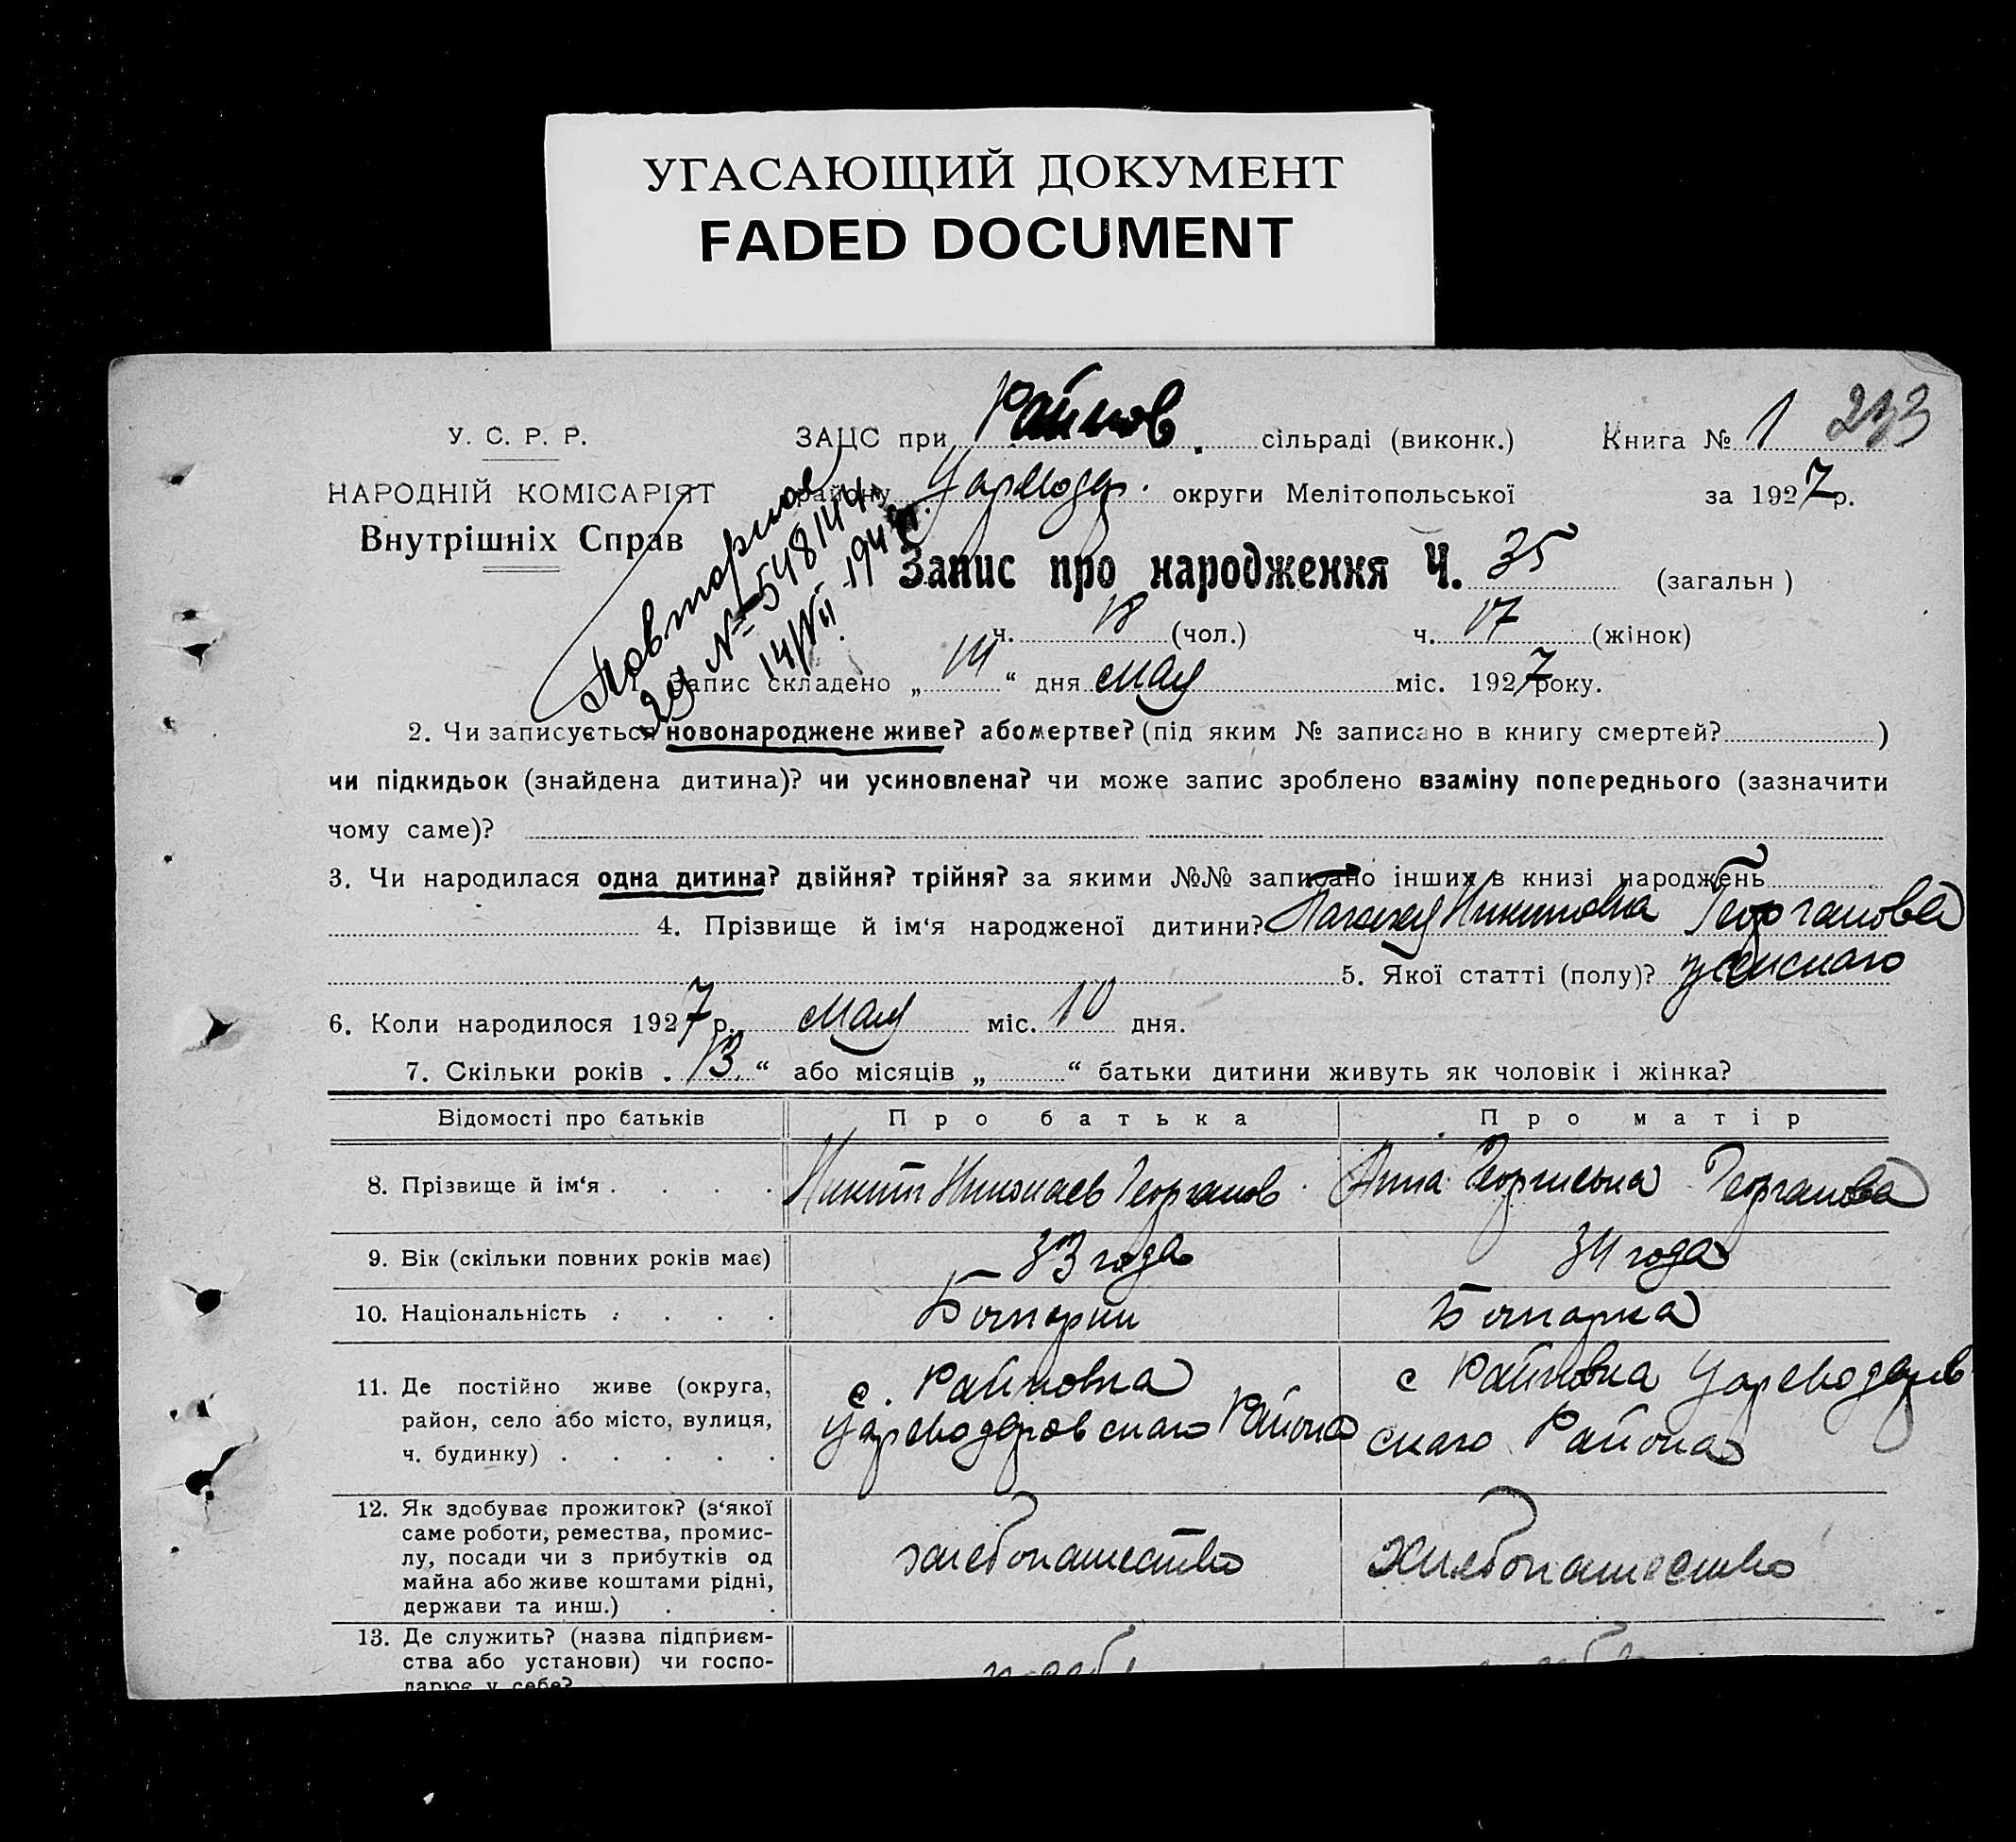 УГАСАЮЩИЙ ДОКУМЕНТ
FADED DOCUMENT
У. С. Р. Р.
НАРОДНІЙ КОМІСАРІЯТ
Внутрішніх Справ
ЗАЦС при Райнов. сільраді (виконк.)
Книга № 1
району Цареводар. округи Мелітопольської
за 1927 р.
Повторное
Запис про народження Ч. 35 (загальн)
ч. 18 (чол.) ч. 17 (жінок)
1. Запис складено „ 14 “ дня мая міс. 1927 року.
2. Чи записується новонароджене живе? або мертве? (під яким № записано в книгу смертей? )
чи підкидьок (знайдена дитина)? чи усиновлена? чи може запис зроблено взаміну попереднього (зазначити
чому саме)?
3. Чи народилася одна дитина? двійня? трійня? за якими №№ записано інших в книзі народжень
4. Прізвище й ім‘я народженої дитини? Никитовна Георганова
5. Якої статті (полу)? женскаго
6. Коли народилося 1927 р. мая міс. 10 дня.
7. Скільки років 13 “ або місяців „ “ батьки дитини живуть як чоловік і жінка?
Відомості про батьків Про батька Про матір
8. Прізвище й ім‘я Никита Николаев Георганов Анна Георгиевна Георганова
9. Вік (скільки повних років має) 33 года 34 года
10. Національність Болгарин Болгарка
11. Де постійно живе (округа,
район, село або місто, вулиця,
ч. будинку)
с. Райновка
Цареводаровскаго Района
с Райновка Цареводаров
скаго Района
12. Як здобуває прожиток? (з‘якої
саме роботи, ремества, промис-
лу, посади чи з прибутків од
майна або живе коштами рідні,
держави та инш.)
хлебопашество хлебопашество
13. Де служить? (назва підприєм-
ства або установи) чи госпо-
дарює у себе?